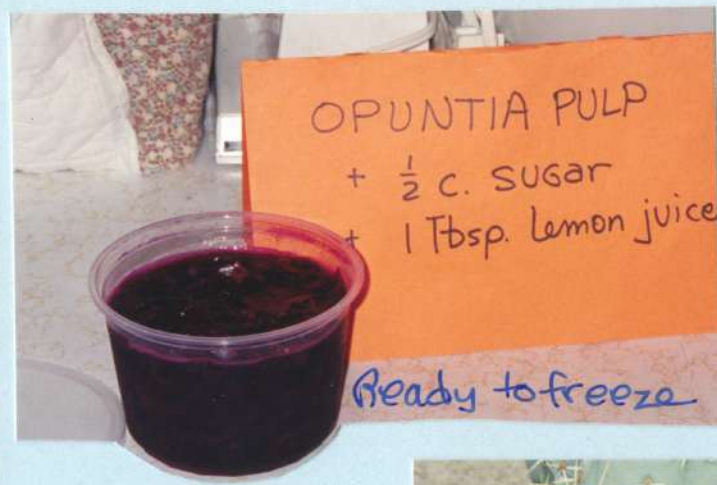 OPUNTIA PULP
+ 1/2 c. SUGAR
+ 1 Tbsp. Lemon juice
Ready to freeze